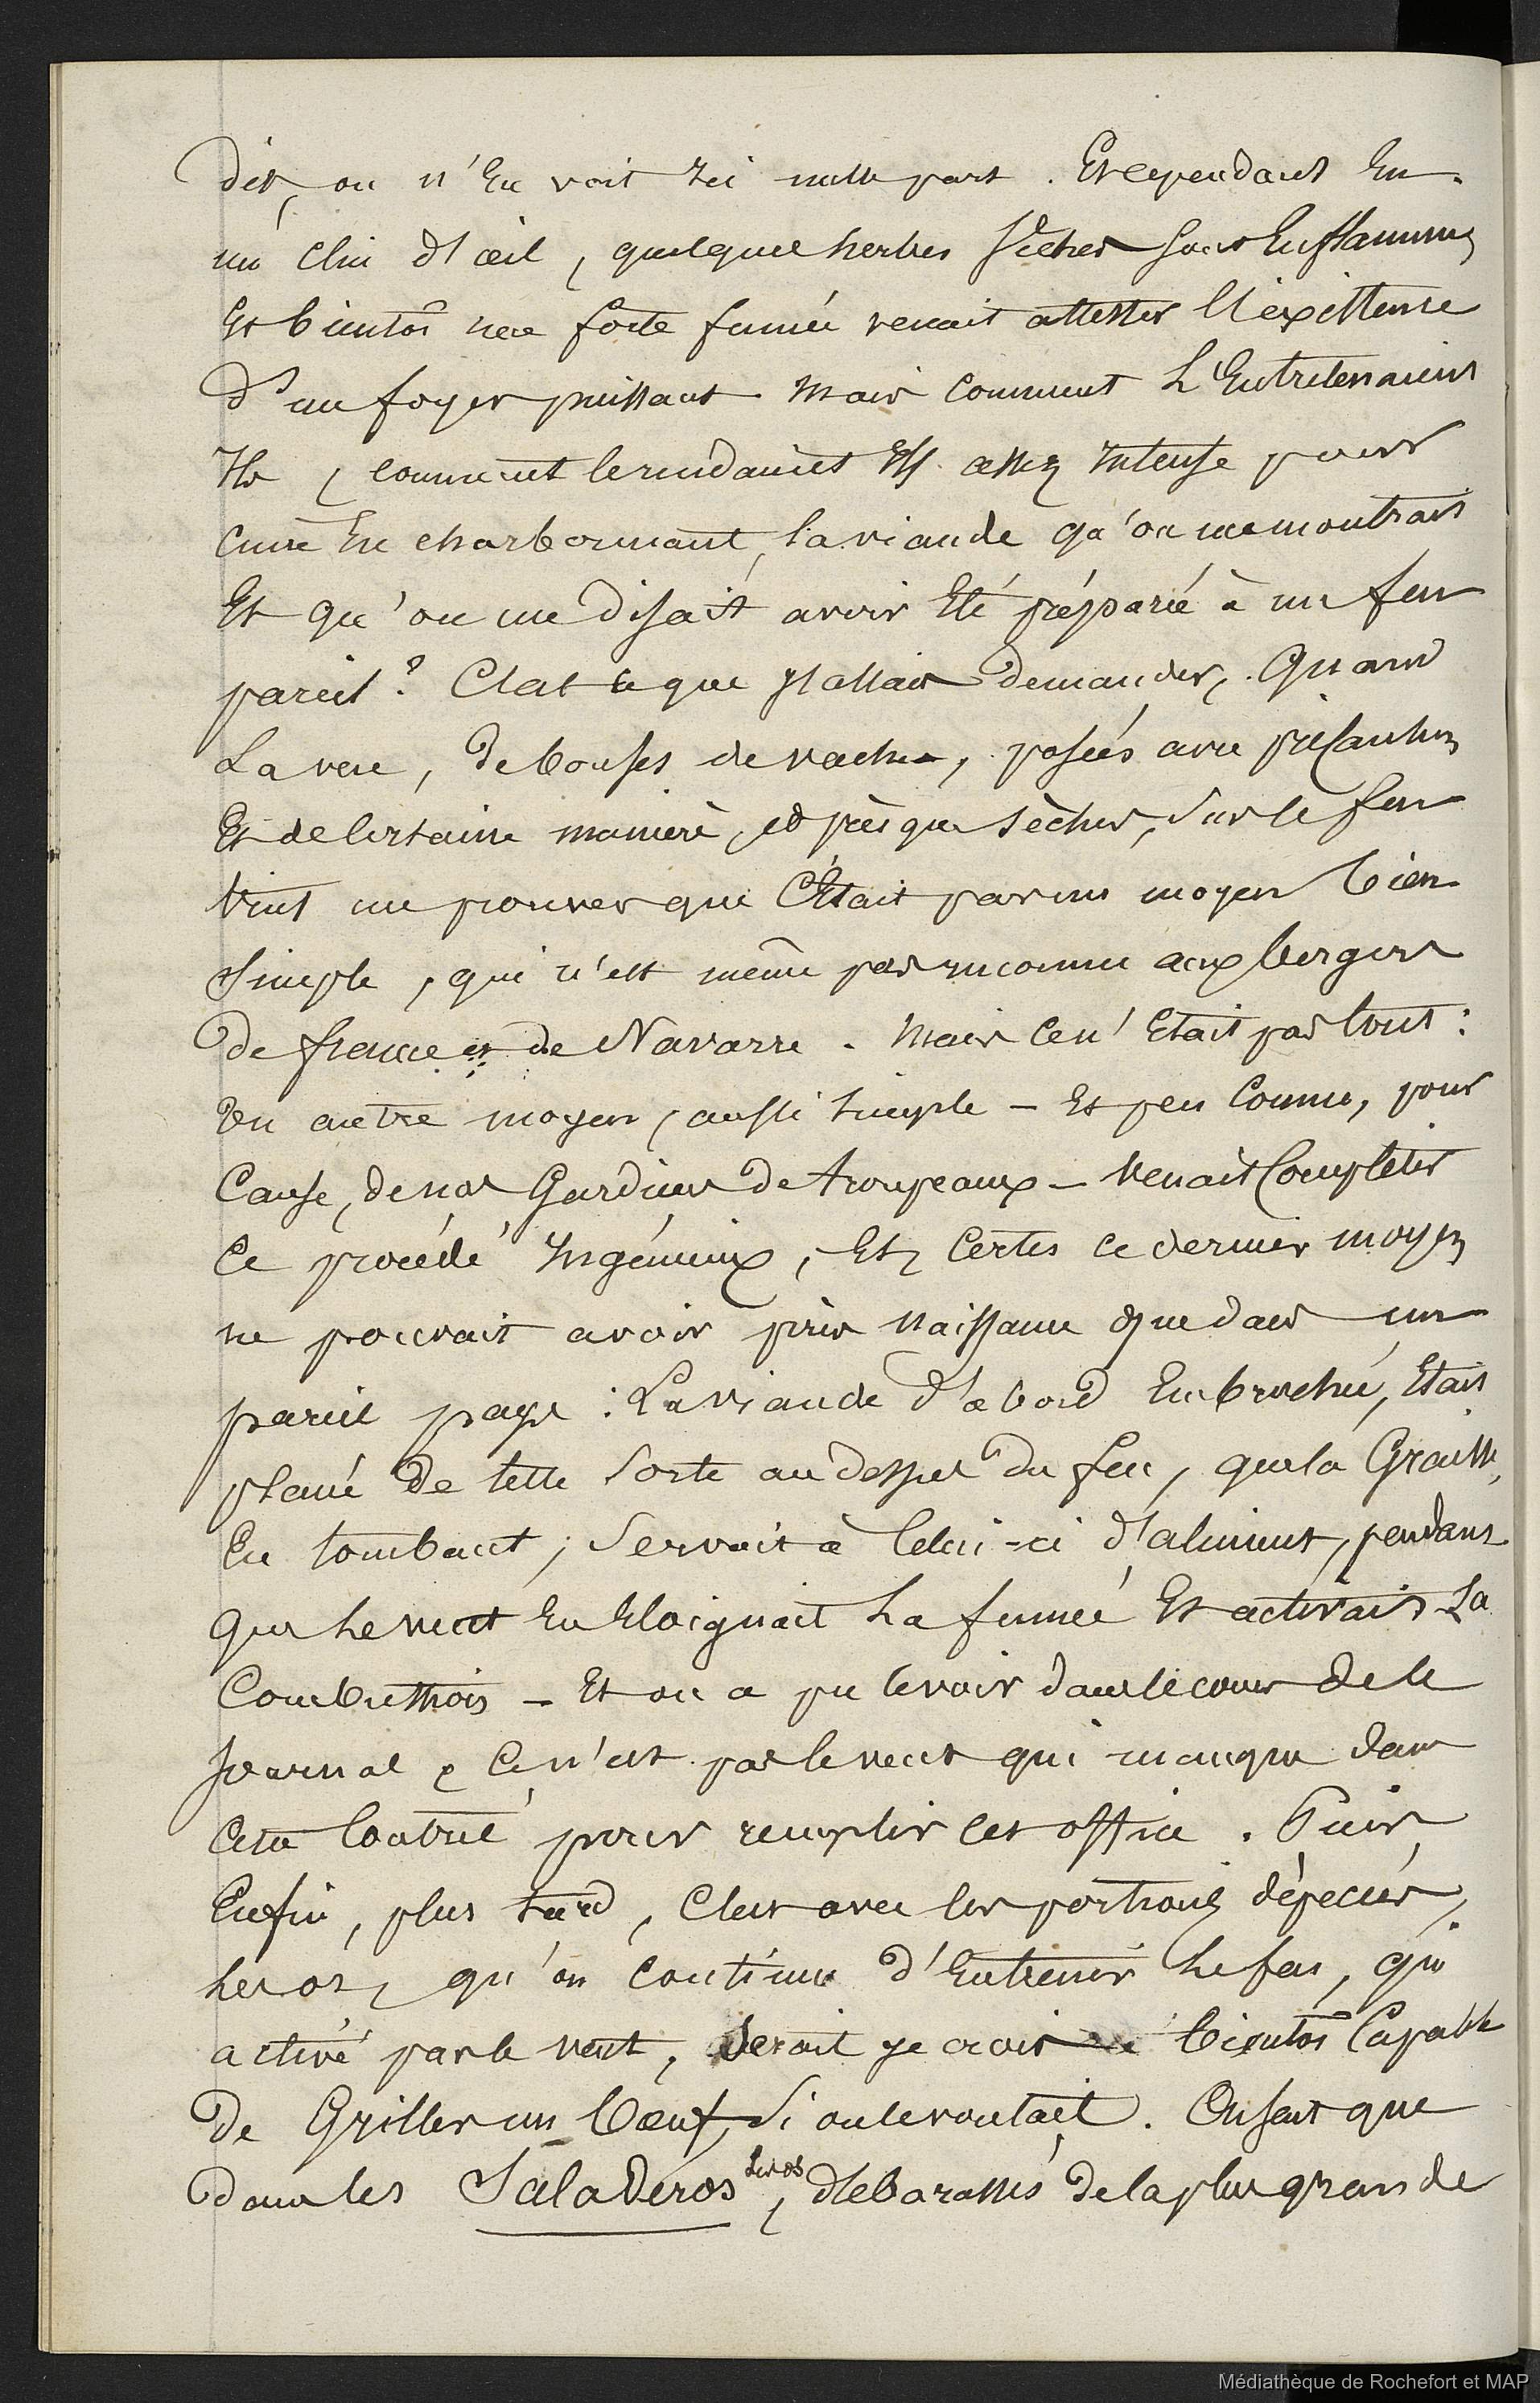 dit, on n'En voit Ici nulle part. Et cependant En
un clin d'œil, quelques herbes sèches sont Enflammées
Et bientôt une forte fumée venait attester l'existence
d'un foyer puissant. Mais comment L'Entretenaient
Ils, comment le rendaient Ils assez Intense pour
cuire En charbonnant, la viande qu'on me montrait
Et qu'on me disait avoir Eté préparée à un feu
pareil? C'est ce que j'allais demander, quand
La vue, de bouses de vaches, posées avec précaution
Et de certaine manière, et presque sèches, sur le feu
vint me prouver que C'Etait par un moyen bien
simple, qui n'est même pas inconnu aux bergers
de france et de Navarre. Mais ce n'Etait pas tout:
Un autre moyen, aussi simple – Et peu Connu, pour
Cause, de nos Gardiens de troupeaux – venait Compléter
Ce procédé Ingénieux, Et, Certes ce dernier moyen
ne pouvait avoir pris naissance que dans un
pareil pays: La viande d'abord Embrochée, Etait
placée de telle sorte au dessus du feu, que la Graisse,
En tombant, servait à Celui-ci d'aliment, pendant
que Le vent En Eloignait La fumée Et activait La
Combustion – Et on a pu le voir dans le cours de ce
Journal, Ce n'est pas le vent qui manque dans
Cette Contrée pour remplir cet office. Puis
Enfin, plus tard, C'est avec les portions dépecées,
Les os, qu'on continue d'Entretenir Le feu, qui
activé par le vent, serait je crois bientôt Capable
de Griller un bœuf, si on le voulait. On sait que
dans les Saladeros, les os, débarassés de la plus grande
Médiathèque de Rochefort et MAP